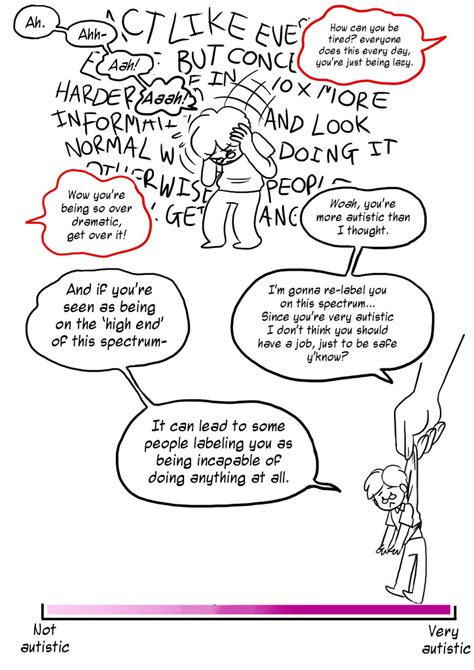 Ah.
Ahh-
Aah!
Aaah!
ACT LIKE EVE
BUT CONCE
E IN 10X MORE
HARDER
INFORMATI AND LOOK
NORMAL W DOING IT
OTHERWISE PEOPLE
GET ANG
How can you be
tired? everyone
does this every day,
you're just being lazy.
Wow you're
being so over
dramatic,
get over it!
Woah, you're
more autistic than
I thought.
I'm gonna re-label you
on this spectrum...
Since you're very autistic
I don't think you should
have a job, just to be safe
y'know?
And if you're
seen as being
on the 'high end'
of this spectrum-
It can lead to some
people labeling you as
being incapable of
doing anything at all.
Not
autistic
Very
autistic